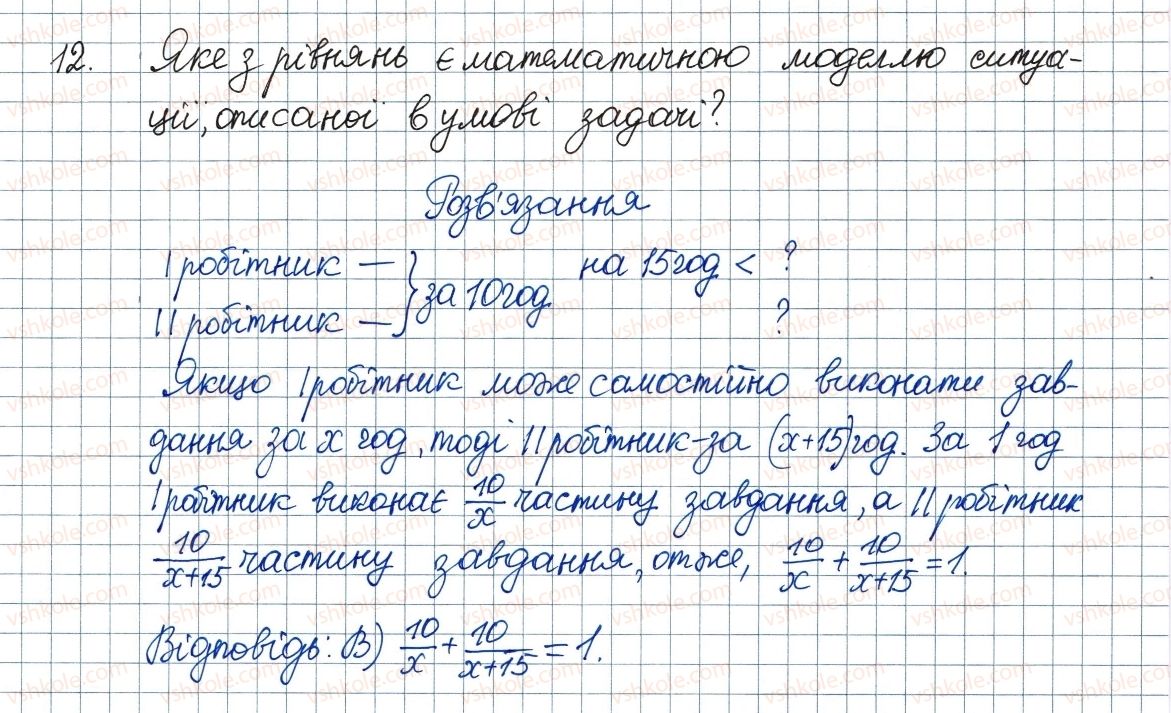 12. Яке з рівнянь є математичною моделлю ситуа-
ції, описаної в умові задачі?
Розв'язання
I робітник — } за 10 год. на 15 год < ?
II робітник — ?
Якщо I робітник може самостійно виконати зав-
дання за x год, тоді II робітник - за (x+15) год. За 1 год
I робітник виконає 10/x частину завдання, а II робітник
10/(x+15) частину завдання, отже, 10/x + 10/(x+15) = 1.
Відповідь: В) 10/x + 10/(x+15) = 1.